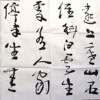 遠上寒山石
徑斜白雲生
處有人家
停車坐愛